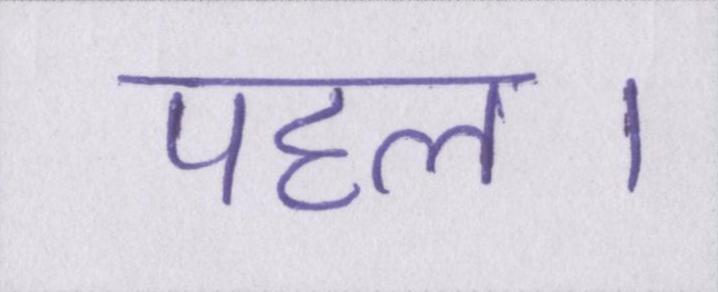 पहल ।